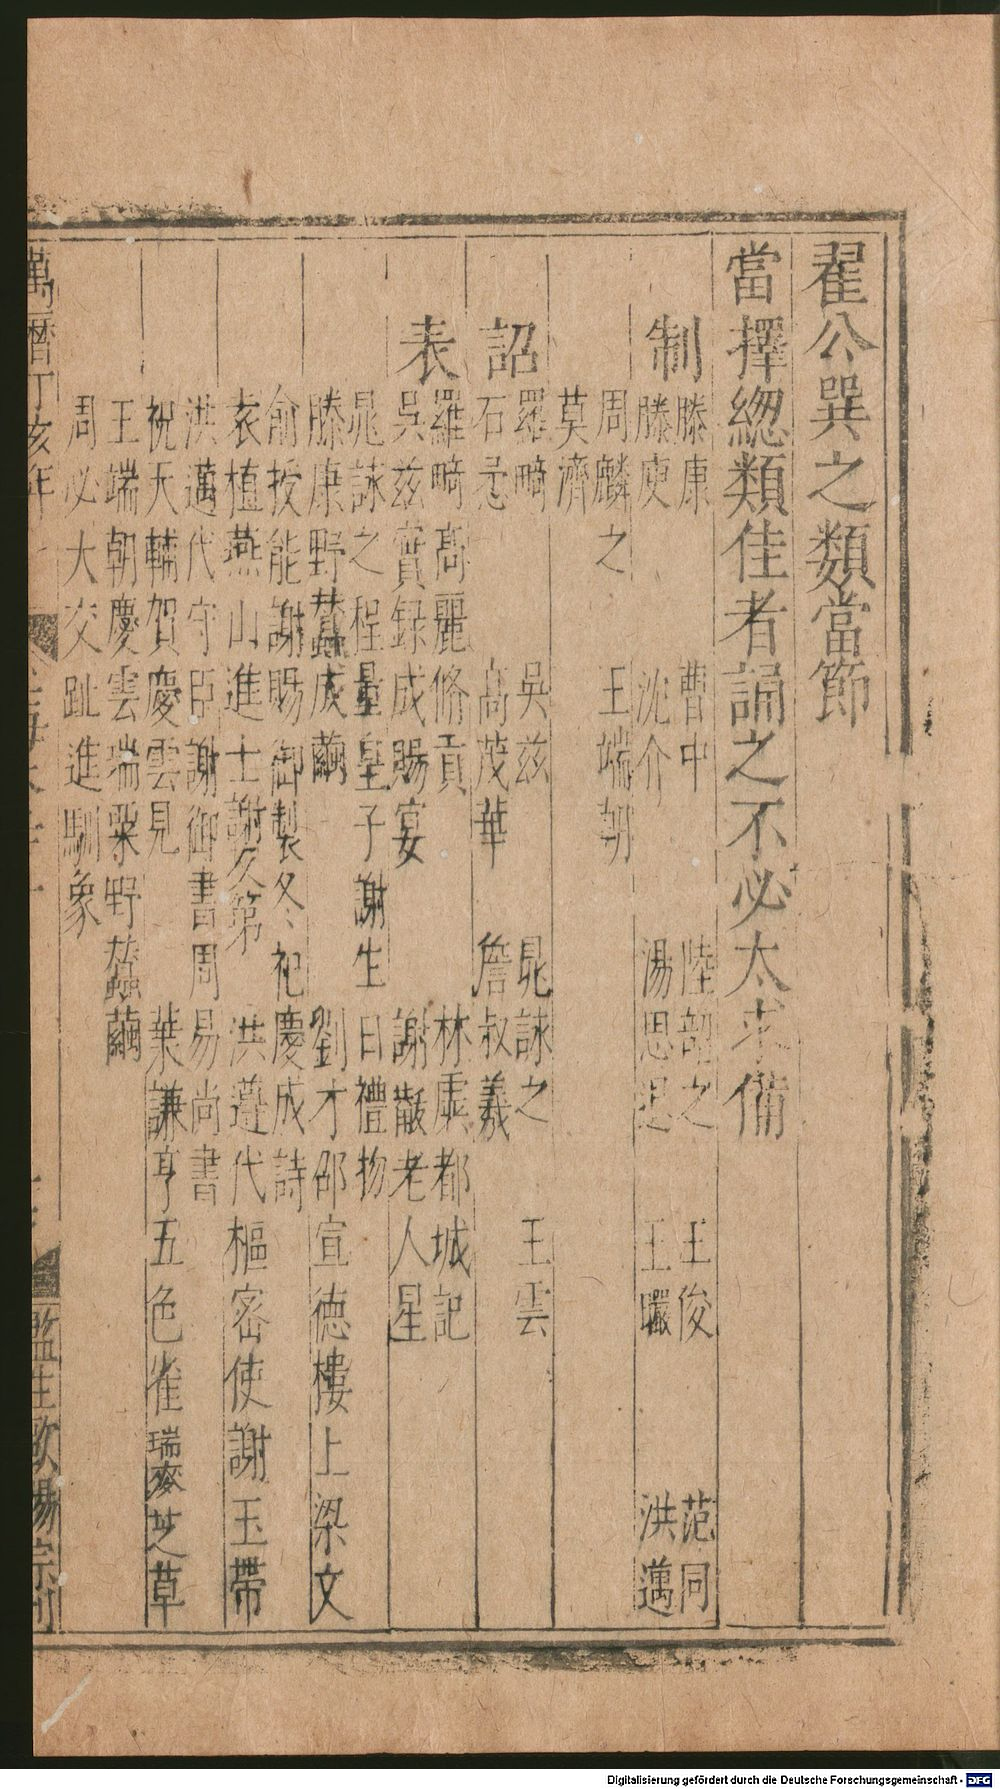 翟公巽之類當節
當擇緫類佳者誦之不必太求備
制
滕康 曹中 陸韶之 王俊 范同
滕庾 沈介 湯思退 王曮 洪邁
周麟之 王端朝
莫濟
詔
羅畸 吳兹 晁詠之 王雲
石悆 高茂華 詹叔義
表
羅畸高麗脩貢 林虙都城記
吳兹實録成賜宴 謝黻老人星
晁詠之程量皇子謝生日禮物
滕康野蠶成繭 劉才邵宣德樓上梁文
俞授能謝賜御製冬祀慶成詩
袁植燕山進士謝及第 洪遵代樞密使謝玉帶
洪邁代守臣謝御書周易尚書
祝天輔賀慶雲見 葉謙亨五色雀瑞麥芝草
王端朝慶雲瑞粟野蠶繭
周必大交趾進馴象
萬曆丁亥年
監生歐陽宗刊
Digitalisierung gefördert durch die Deutsche Forschungsgemeinschaft - DFG